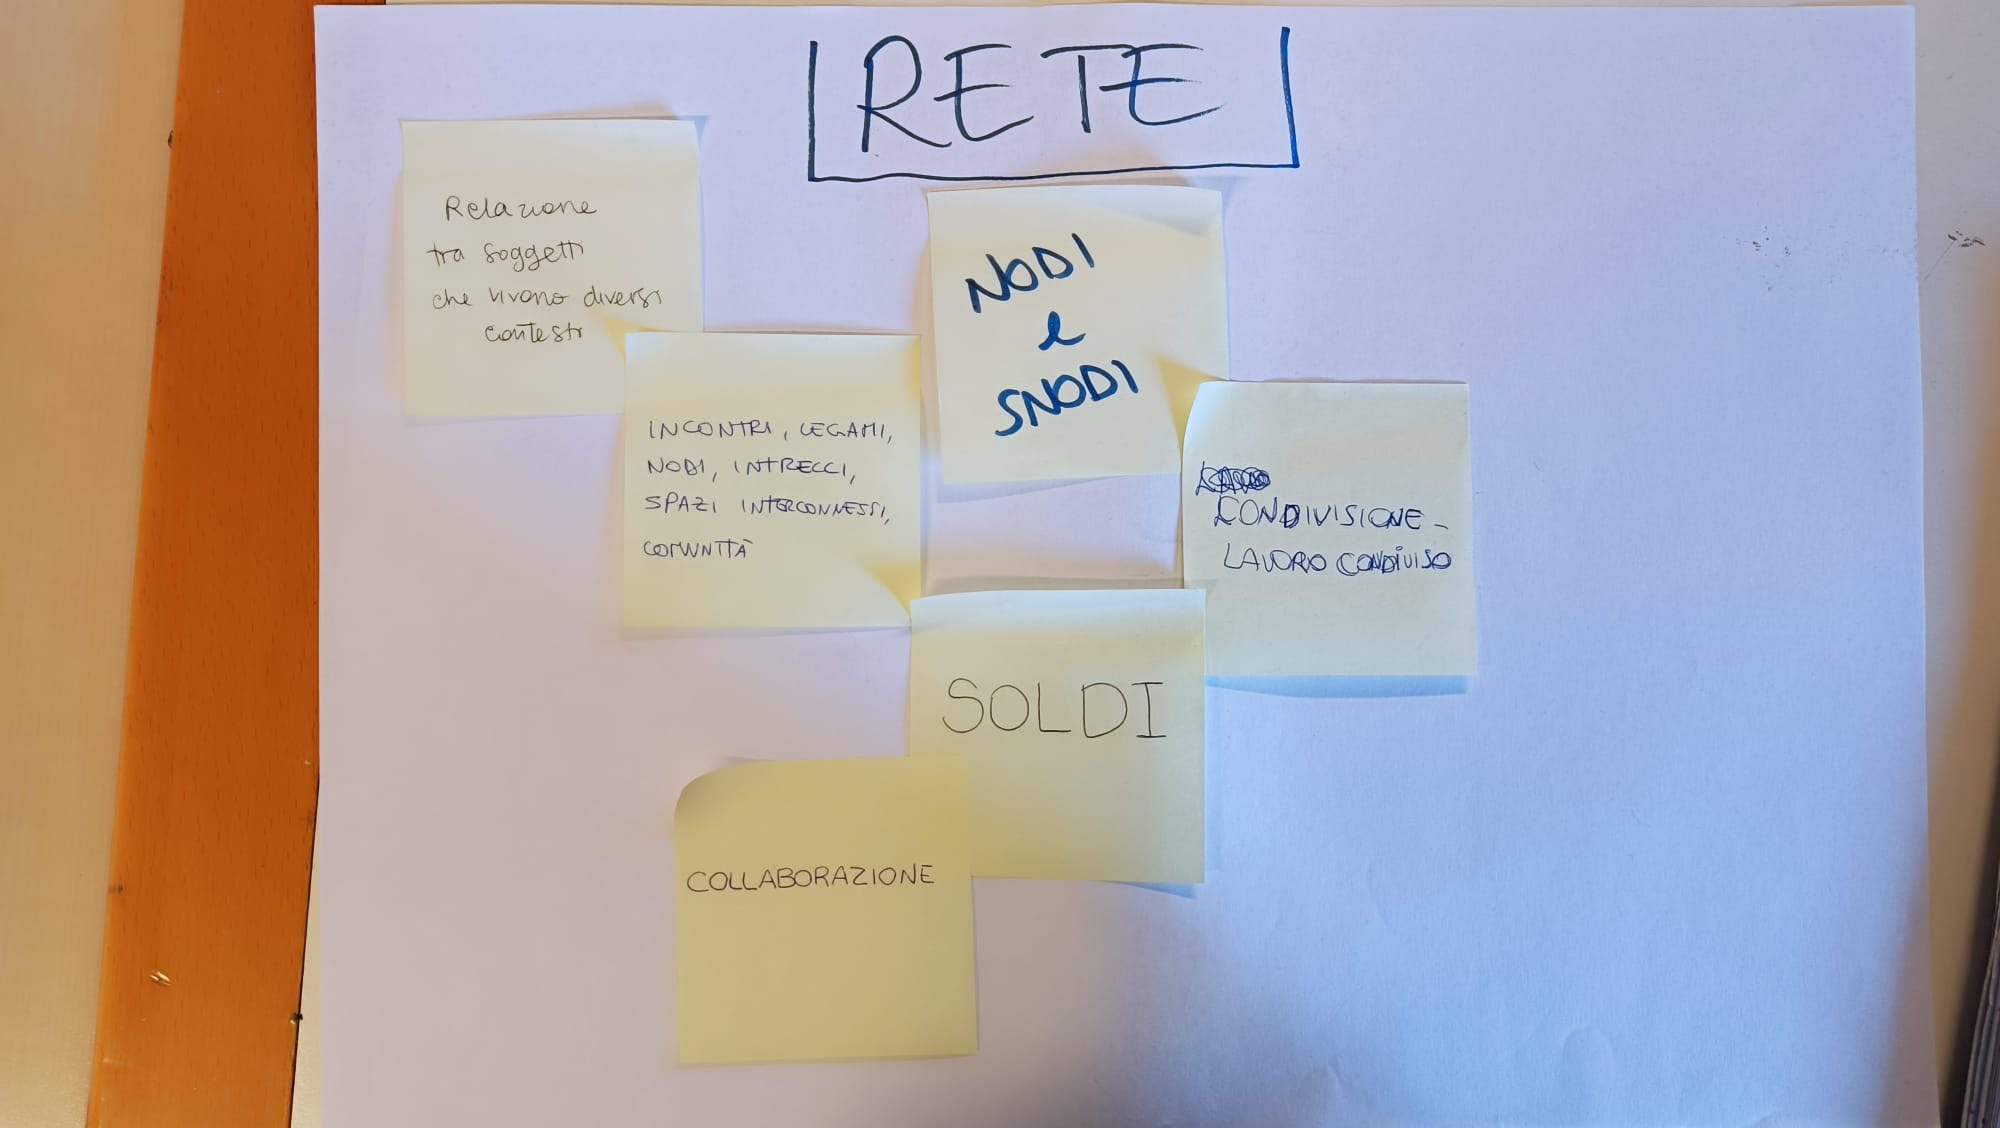 RETE
Relazione
tra soggetti
che vivono diversi
contesti
INCONTRI, LEGAMI,
NODI, INTRECCI,
SPAZI INTERCONNESSI,
COMUNITÀ
NODI
e
SNODI
CONDIVISIONE -
LAVORO CONDIVISO
SOLDI
COLLABORAZIONE